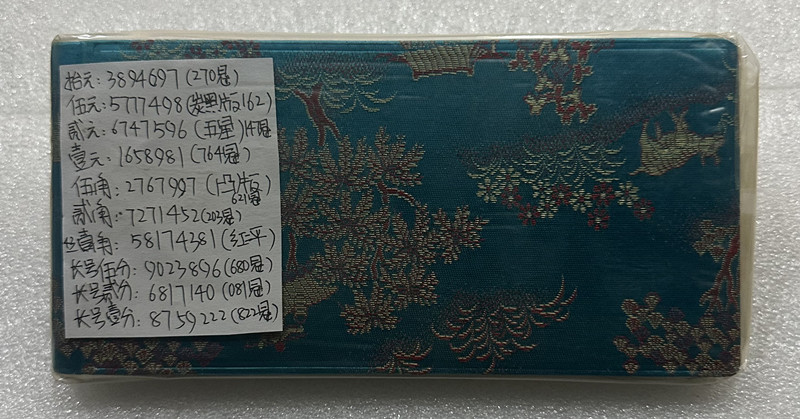 拾元:3894697(270冠)
伍元:5777498(炭黑版162)
贰元:6747596(五星)147冠
壹元:1658981(764冠)
伍角:2767997(凸版)
621冠
贰角:7271452(203冠)
壹角:58174381(红平)
长号伍分:9023896(680冠)
长号贰分:6817140(081冠)
长号壹分:8759222(822冠)